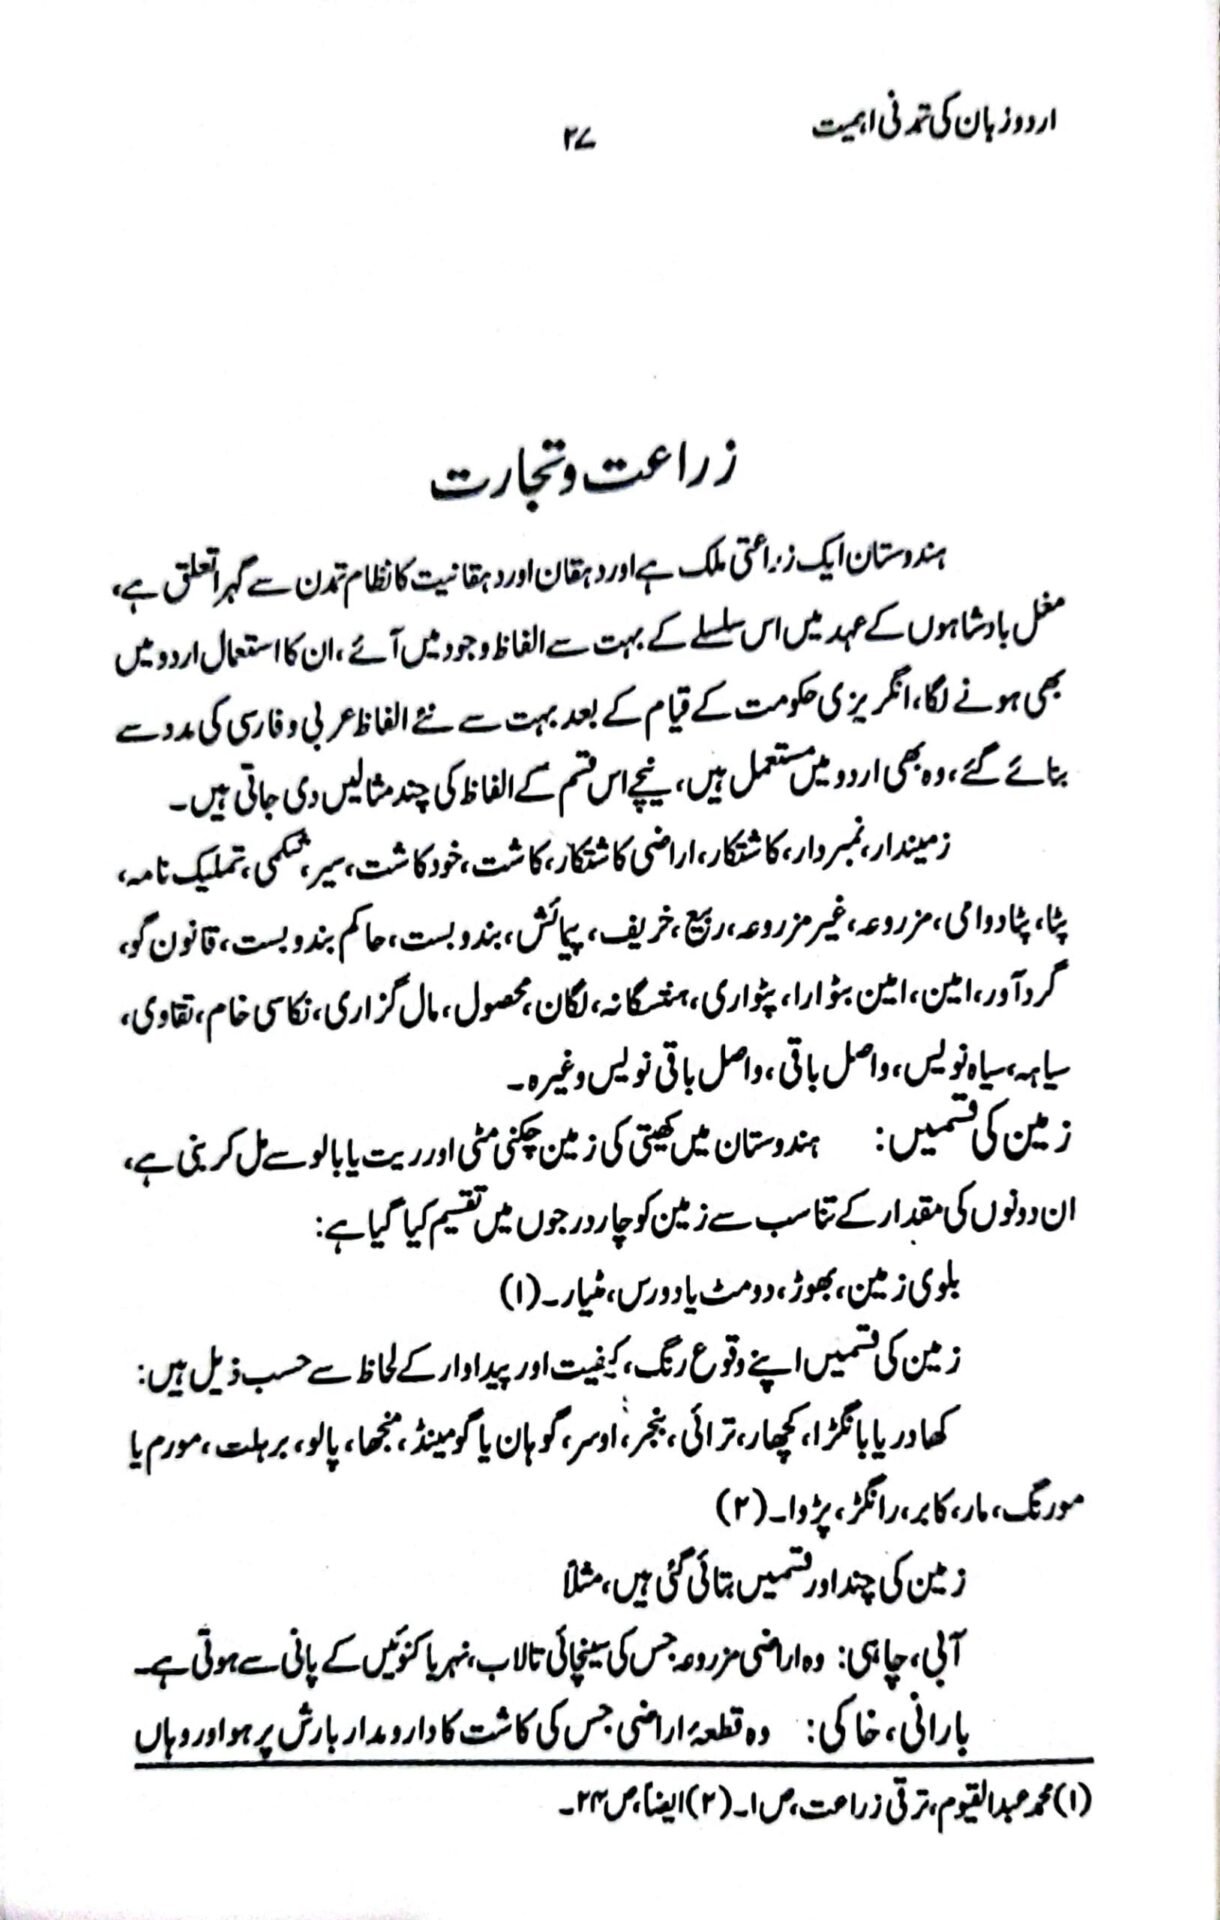 اردو زبان کی تمدنی اہمیت
۲۷
زراعت و تجارت
ہندوستان ایک زراعتی ملک ہے اور دہقان اور دہقانیت کا نظام تمدن سے گہرا تعلق ہے،
مغل بادشاہوں کے عہد میں اس سلسلے کے بہت سے الفاظ وجود میں آئے، ان کا استعمال اردو میں
بھی ہونے لگا، انگریزی حکومت کے قیام کے بعد بہت سے نئے الفاظ عربی و فارسی کی مدد سے
بنائے گئے، وہ بھی اردو میں مستعمل ہیں، نیچے اس قسم کے الفاظ کی چند مثالیں دی جاتی ہیں۔
زمیندار، نمبردار، کاشتکار، اراضی کاشتکار، کاشت، خود کاشت، سیر، شکمی، تملیک نامہ،
پٹا، پٹا دوامی، مزروعہ، غیر مزروعہ، ربیع، خریف، پیمائش، بندوبست، حاکم بندوبست، قانون گو،
گرد آور، امین، امین بٹوارا، پٹواری، ہفتگانہ، لگان، محصول، مال گزاری، نکاسی خام، تقاوی،
سیاہہ، سیاہ نویس، واصل باقی، واصل باقی نویس وغیرہ۔
زمین کی قسمیں: ہندوستان میں کھیتی کی زمین چکنی مٹی اور ریت یا بالو سے مل کر بنی ہے،
ان دونوں کی مقدار کے تناسب سے زمین کو چار درجوں میں تقسیم کیا گیا ہے:
بلوی زمین، بھوڑ، دومٹ یا دورس، مٹیار۔ (۱)
زمین کی قسمیں اپنے وقوع رنگ، کیفیت اور پیداوار کے لحاظ سے حسب ذیل ہیں:
کھادر یا بانگڑا، کچھار، ترائی، بنجر، اوسر، گوہان یا گومینڈ، منجھا، پالو، برہلت، مورم یا
مورنگ، مار، کابر، رانگڑ، پڑوا۔ (۲)
زمین کی چند اور قسمیں بتائی گئی ہیں، مثلاً
آبی، چاہی: وہ اراضی مزروعہ جس کی سینچائی تالاب، نہر یا کنوئیں کے پانی سے ہوتی ہے۔
بارانی، خاکی: وہ قطعۂ اراضی جس کی کاشت کا دارومدار بارش پر ہو اور وہاں
(۱) محمد عبدالقیوم، ترقی زراعت، ص ۱۔ (۲) ایضاً، ص ۲۴۔